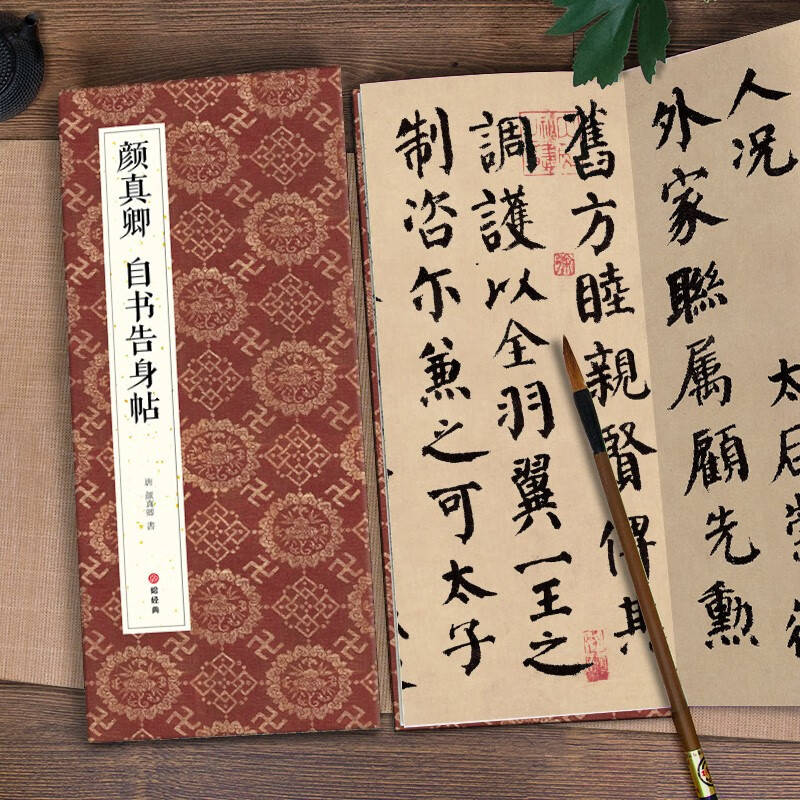 颜真卿 自书告身帖
唐 颜真卿 書
经典
人况太后崇
外家聯属顧先勳
舊方睦親賢俾其
調護以全羽翼一王之
制咨尓兼之可太子